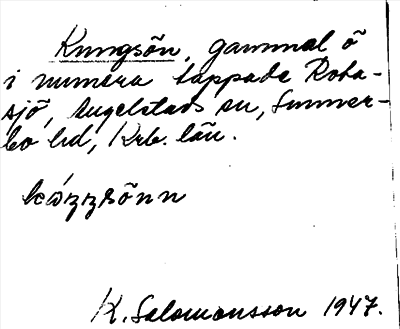 Kungsön, gammal ö
i numera tappade Rota-
sjö, Augelstads sn, Sunner-
bo hd, Krb. län.
K. Salomonsson 1947.